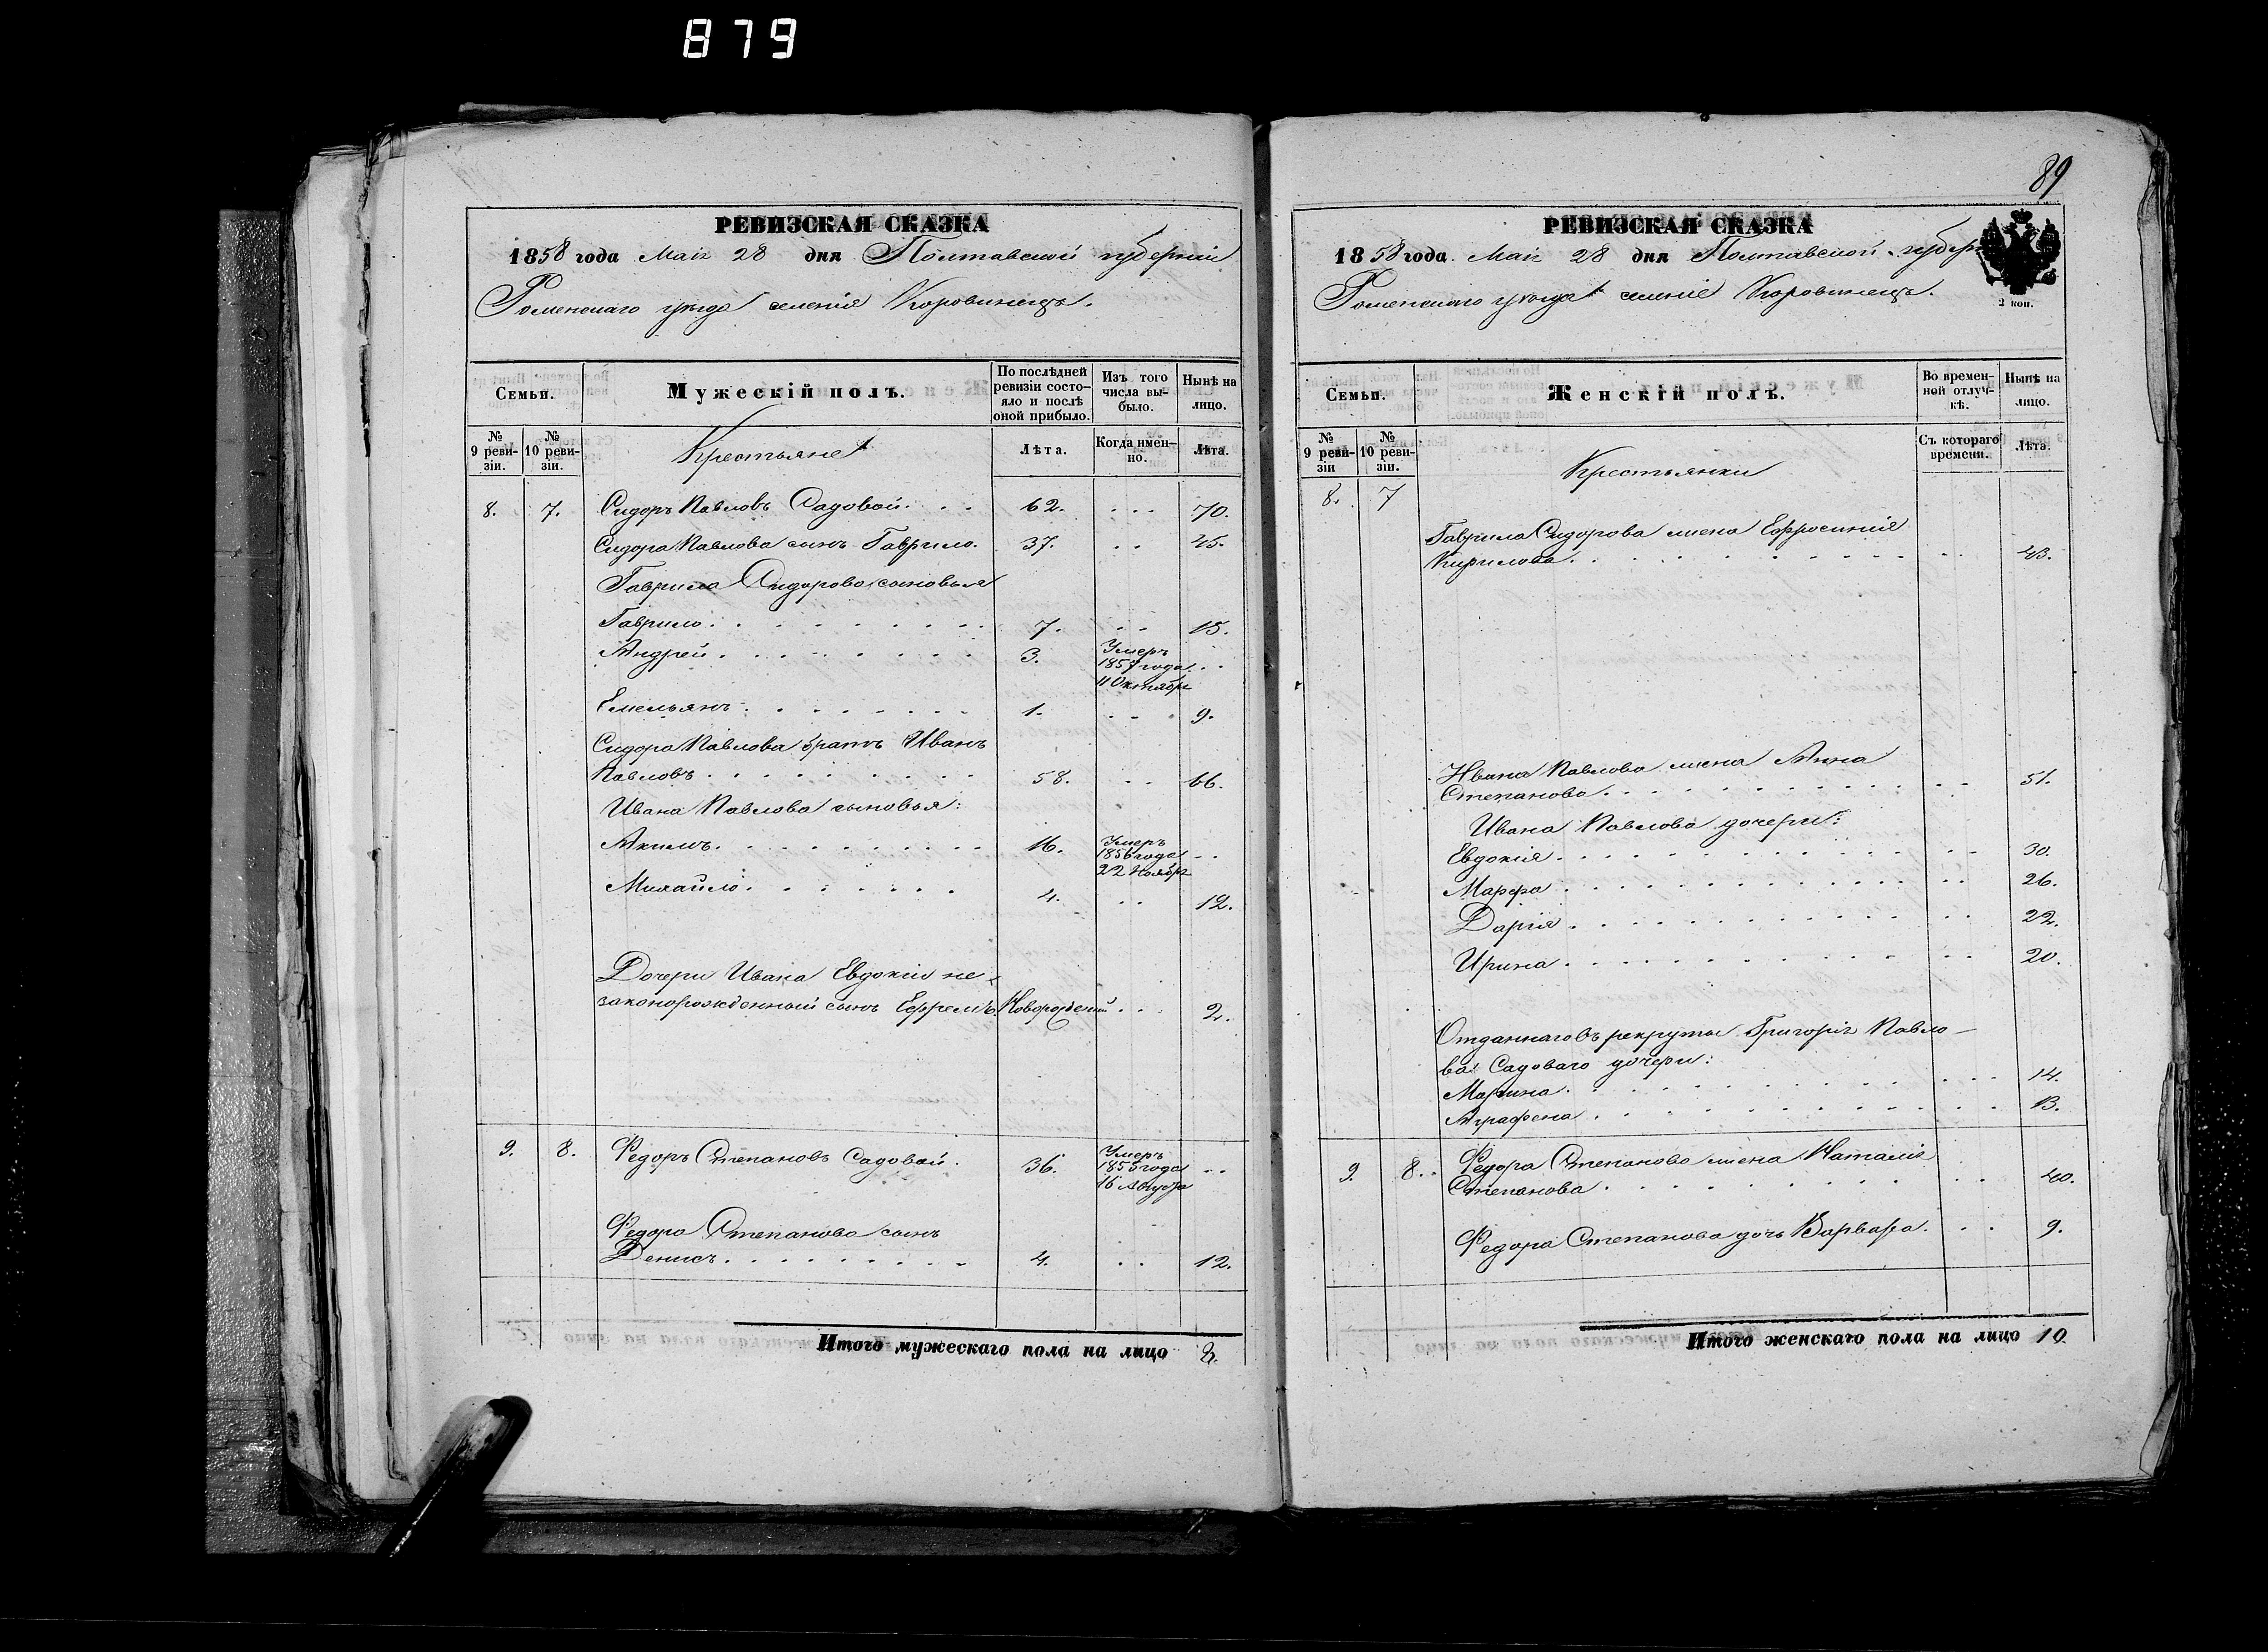 879
РЕВИЗСКАЯ СКАЗКА
1858 года Маія 28 дня Полтавской губерніи
Роменскаго уѣзда селенія Коровинецъ.
Семьи.
Мужескій полъ.
По послѣдней ревизіи состояло и послѣ оной прибыло.
Изъ того числа выбыло.
Нынѣ на лицо.
№ 9 ревизіи.
№ 10 ревизіи.
Крестьяне
Лѣта.
Когда именно.
Лѣта.
8. 7. Сидоръ Павловъ Садовой . . . 62. . . . 70.
Сидора Павлова сынъ Гаврило. 37. . . 45.
Гаврила Сидорова сыновья
Гаврило . . . . . . . . . 7. . . 15.
Андрей . . . . . . . . 3. Умеръ 1857 года 11 Октября . .
Емельянъ . . . . . . . . 1. . . . 9.
Сидора Павлова братъ Иванъ
Павловъ . . . . . . . . . 58. . . 66.
Ивана Павлова сыновья:
Акимъ . . . . . . . . . 16. Умеръ 1856 года 22 Ноября . .
Михайло . . . . . . . 4. . . 12.
Дочери Ивана Евдокіи не-
законорожденный сынъ Ефремъ. Новорожденный . . . 2.
9. 8. Федоръ Степановъ Садовой. 36. Умеръ 1855 года 16 Августа . .
Федора Степанова сынъ
Денисъ . . . . . . . . . 4. . . 12.
Итого мужескаго пола на лицо 8.
89
РЕВИЗСКАЯ СКАЗКА
1858 года Маія 28 дня Полтавской губер
Роменскаго уѣзда селеніе Коровинецъ.
2 коп.
Семьи.
Женскій полъ.
Во временной отлучкѣ.
Нынѣ на лицо.
№ 9 ревизіи
№ 10 ревизіи.
Крестьянки
Съ котораго времени.
Лѣта.
8. 7
Гаврила Сидорова жена Ефросинія
Кирилова . . . . . . . . . . . 43.
Ивана Павлова жена Анна
Степанова . . . . . . . . . . . . 51.
Ивана Павлова дочери:
Евдокія . . . . . . . . . . . . . 30.
Марфа . . . . . . . . . . . . . 26.
Дарія . . . . . . . . . . . . . 22.
Ирина . . . . . . . . . . . . . 20.
Отданнаго въ рекруты Григорія Павло-
ва Садоваго дочери:
Марина . . . . . . . . . . . . . 14.
Аграфена . . . . . . . . . . . . 13.
9. 8. Федора Степанова жена Наталія
Степанова . . . . . . . . . . . 40.
Федора Степанова дочь Варвара. . . 9.
Итого женскаго пола на лицо 10.